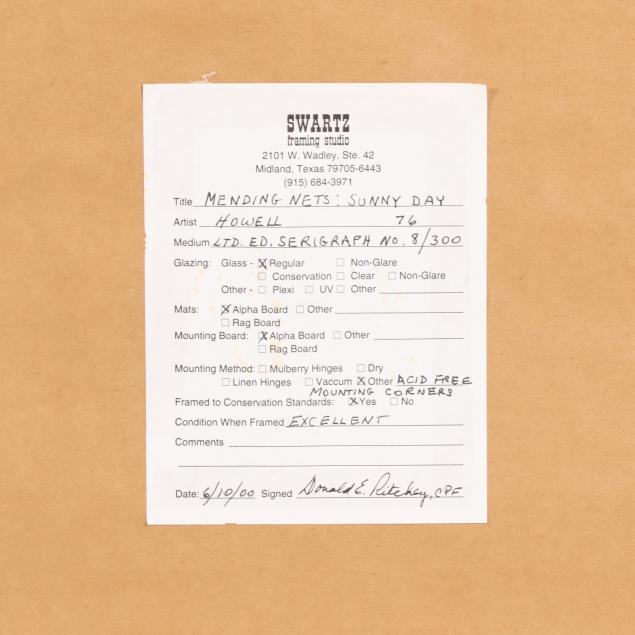 SWARTZ
framing studio
2101 W. Wadley, Ste. 42
Midland, Texas 79705-6443
(915) 684-3971
Title MENDING NETS: SUNNY DAY
Artist HOWELL 76
Medium LTD. ED. SERIGRAPH NO. 8/300
Glazing: Glass - ☒ Regular ☐ Non-Glare
☐ Conservation ☐ Clear ☐ Non-Glare
Other - ☐ Plexi ☐ UV ☐ Other
Mats: ☒ Alpha Board ☐ Other
☐ Rag Board
Mounting Board: ☒ Alpha Board ☐ Other
☐ Rag Board
Mounting Method: ☐ Mulberry Hinges ☐ Dry
☐ Linen Hinges ☐ Vaccum ☒ Other ACID FREE
MOUNTING CORNERS
Framed to Conservation Standards: ☒ Yes ☐ No
Condition When Framed EXCELLENT
Comments
Date: 6/10/00 Signed Donald E. Ritchey, CPF